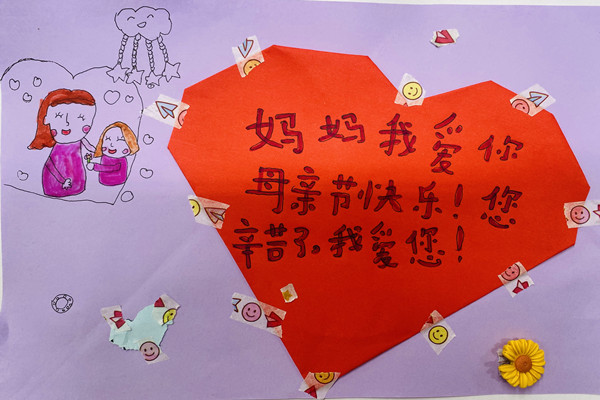 妈妈我爱你
母亲节快乐！您
辛苦了，我爱您！